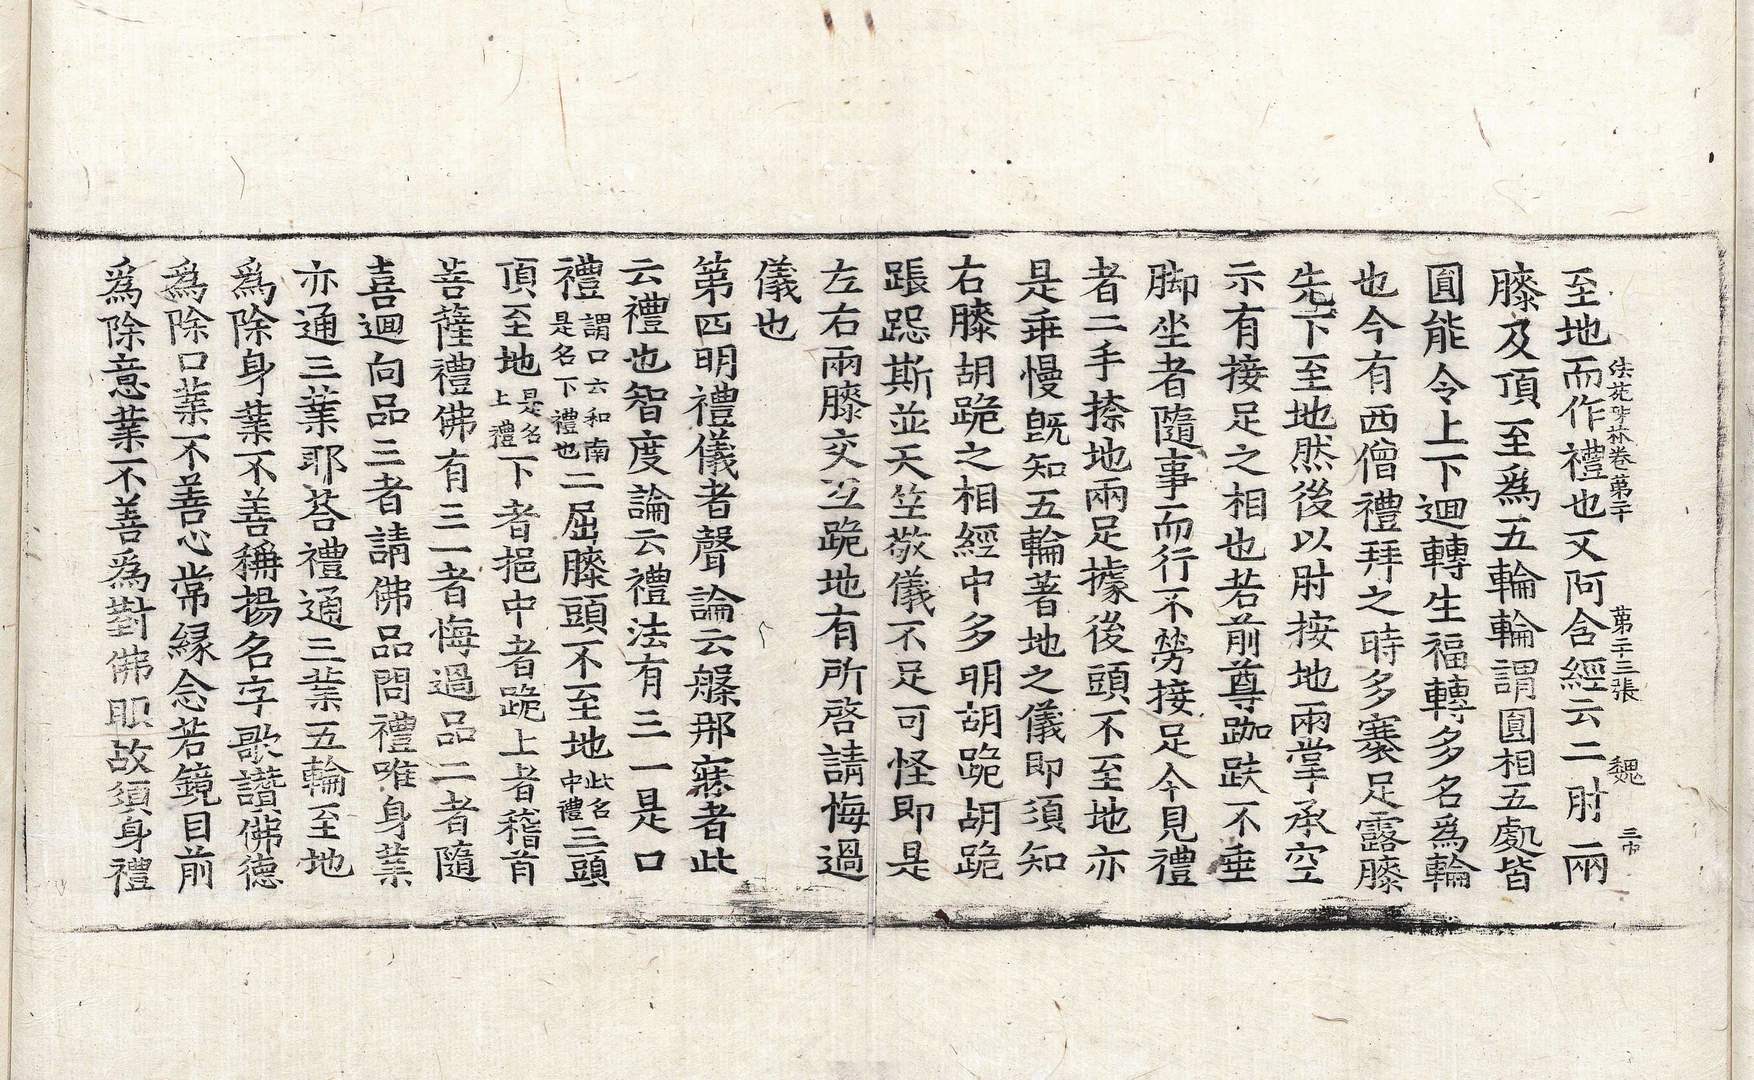 至地而作禮也又阿含經云二肘兩
法苑珠林卷第二十 第二十三張 魏
膝及頂至爲五輪輪謂圓相五處皆
圓能令上下迴轉生福轉多名爲輪
也今有西僧禮拜之時多褰足露膝
先下至地然後以肘按地兩掌承空
示有接足之相也若前尊跏趺不垂
脚坐者隨事而行不勞接足今見禮
者二手捺地兩足據後頭不至地亦
是乖慢旣知五輪著地之儀即須知
右膝胡跪之相經中多明胡跪胡跪
䠆跽斯並天竺敬儀不足可怪即是
左右兩膝交互跪地有所啓請悔過
儀也
第四明禮儀者聲論云槃那寐者此
云禮也智度論云禮法有三一是口
禮謂口云和南是名下禮也二屈膝頭不至地此名中禮三頭
頂至地是名上禮下者挹中者跪上者稽首
菩薩禮佛有三一者悔過品二者隨
喜迴向品三者請佛品問禮唯身業
亦通三業耶荅禮通三業五輪至地
爲除身業不善稱揚名字歌讚佛德
爲除口業不善心常緣念若鏡目前
爲除意業不善爲對佛眼故須身禮